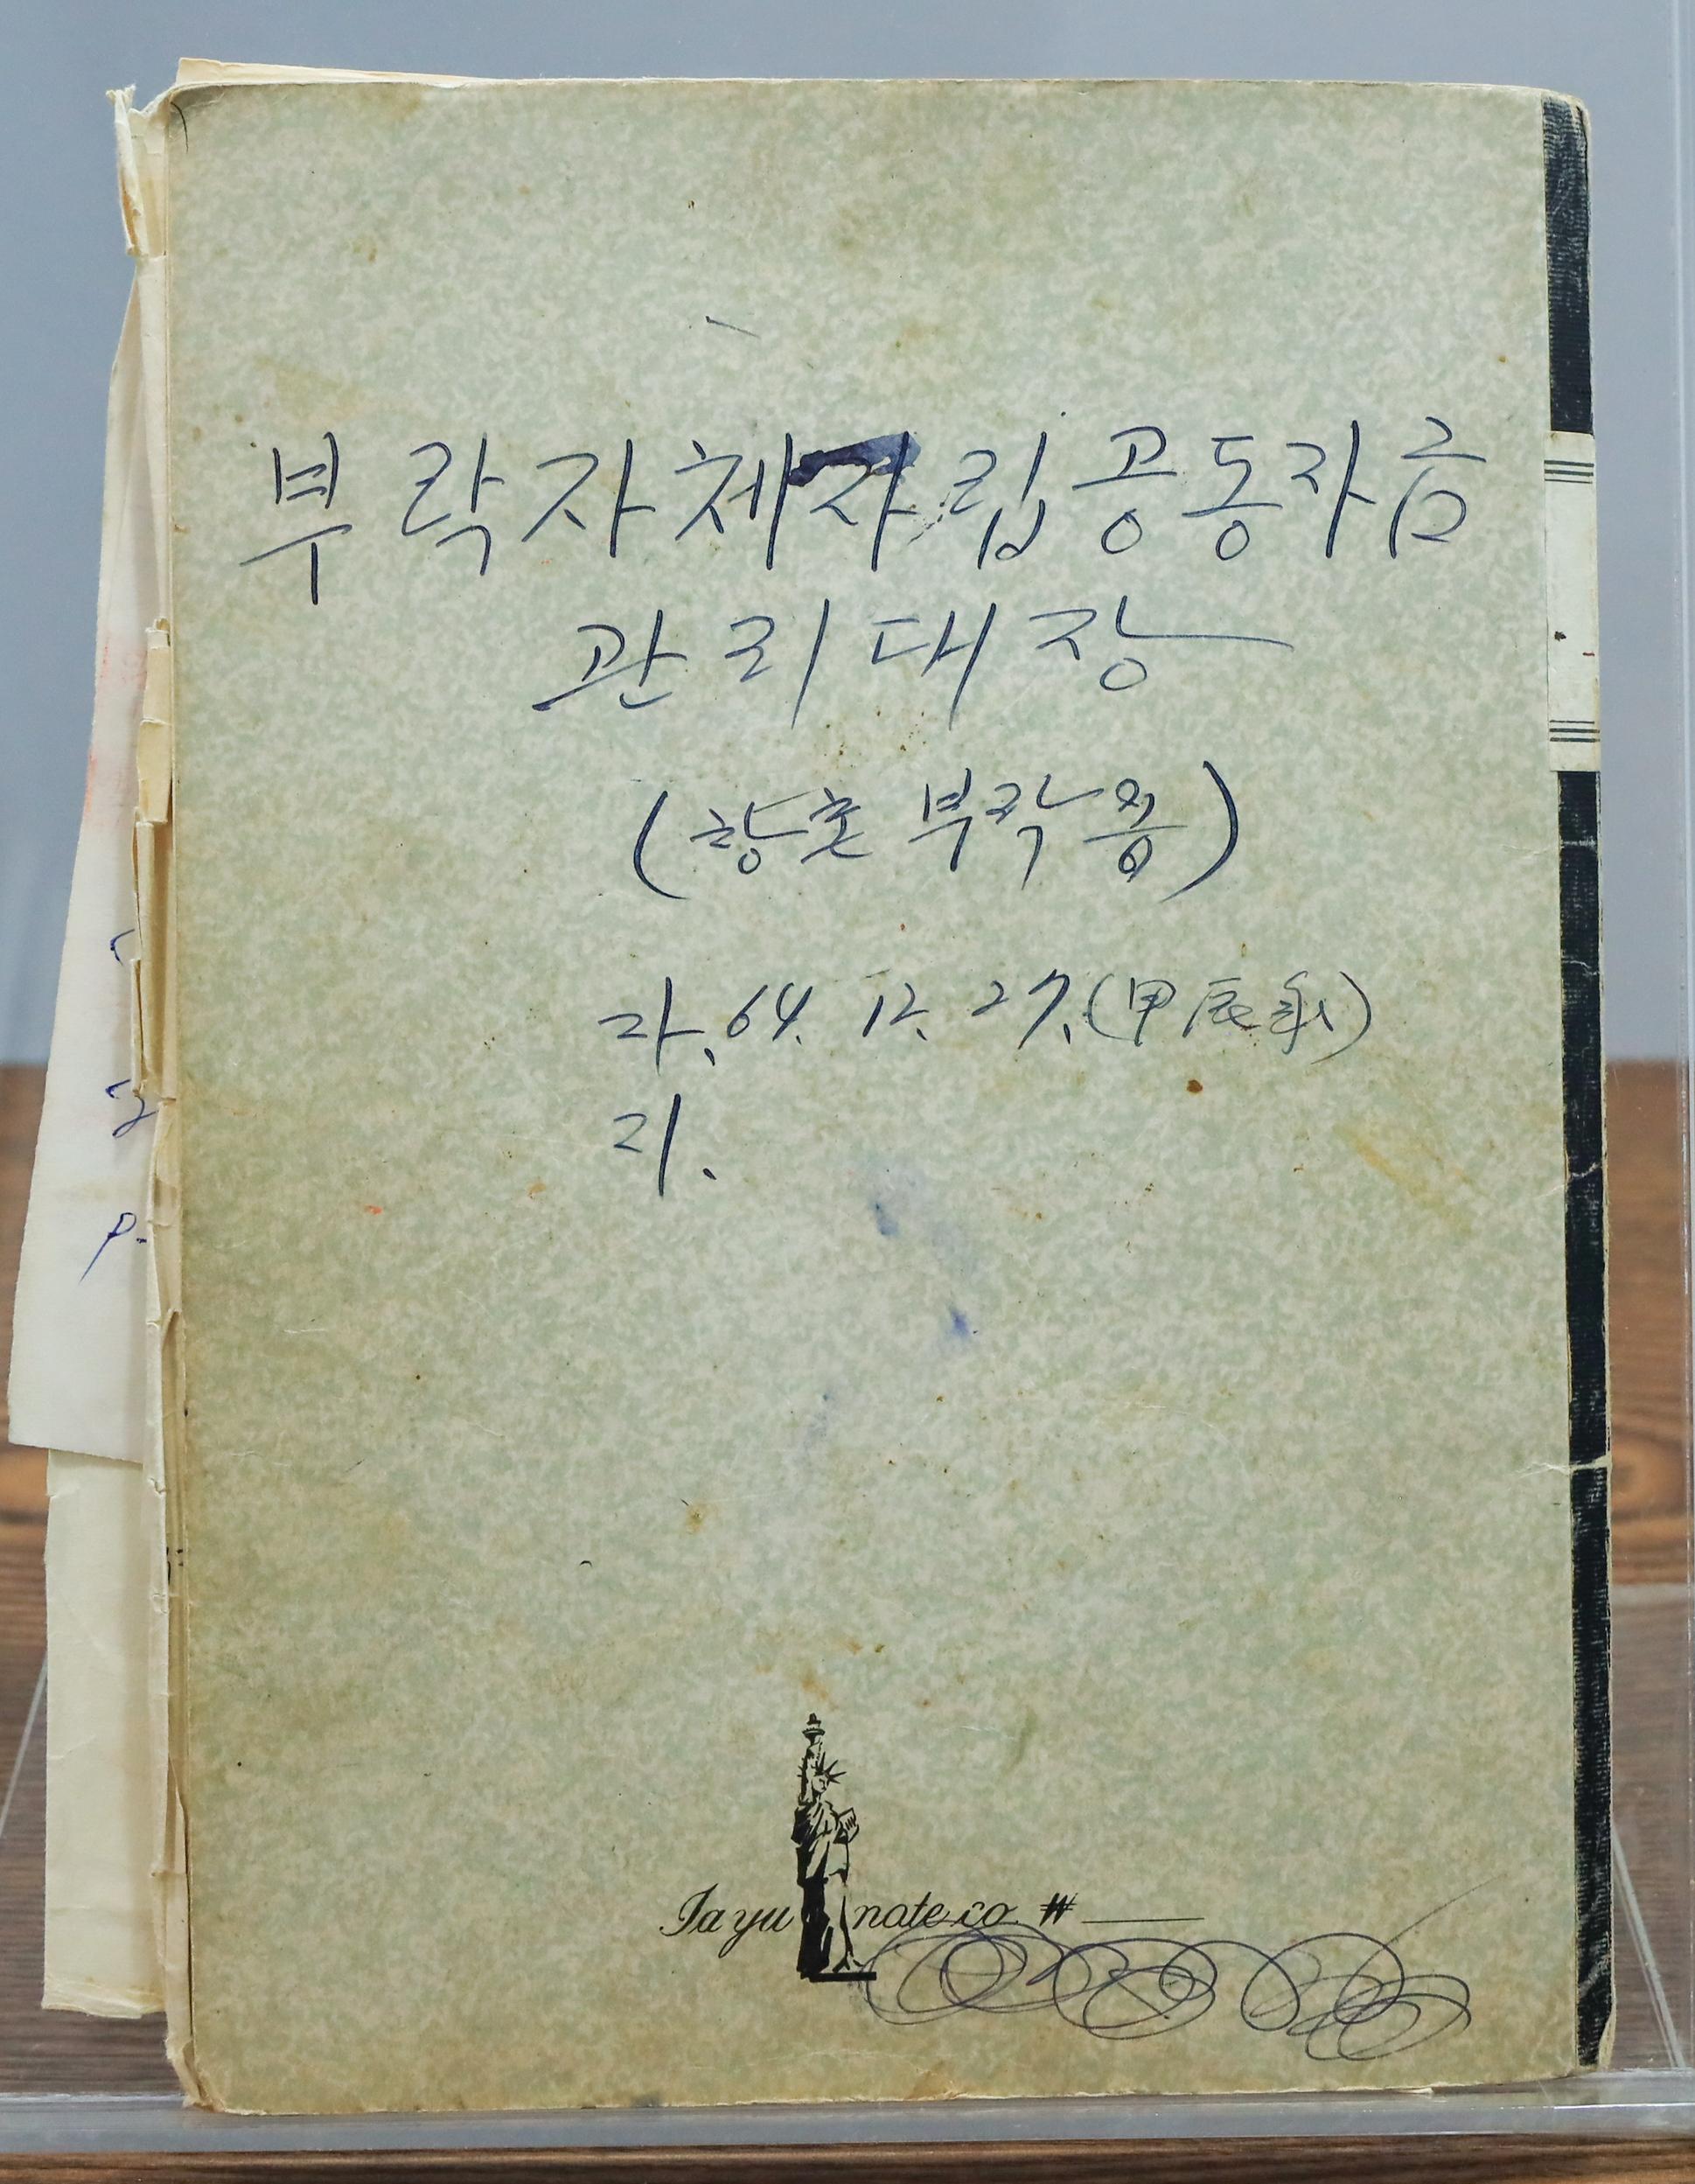 부락자체자립공동자금
관리대장
(향촌 부락용)
자. 64. 12. 27. (甲辰年)
지.
Jayu note co. #